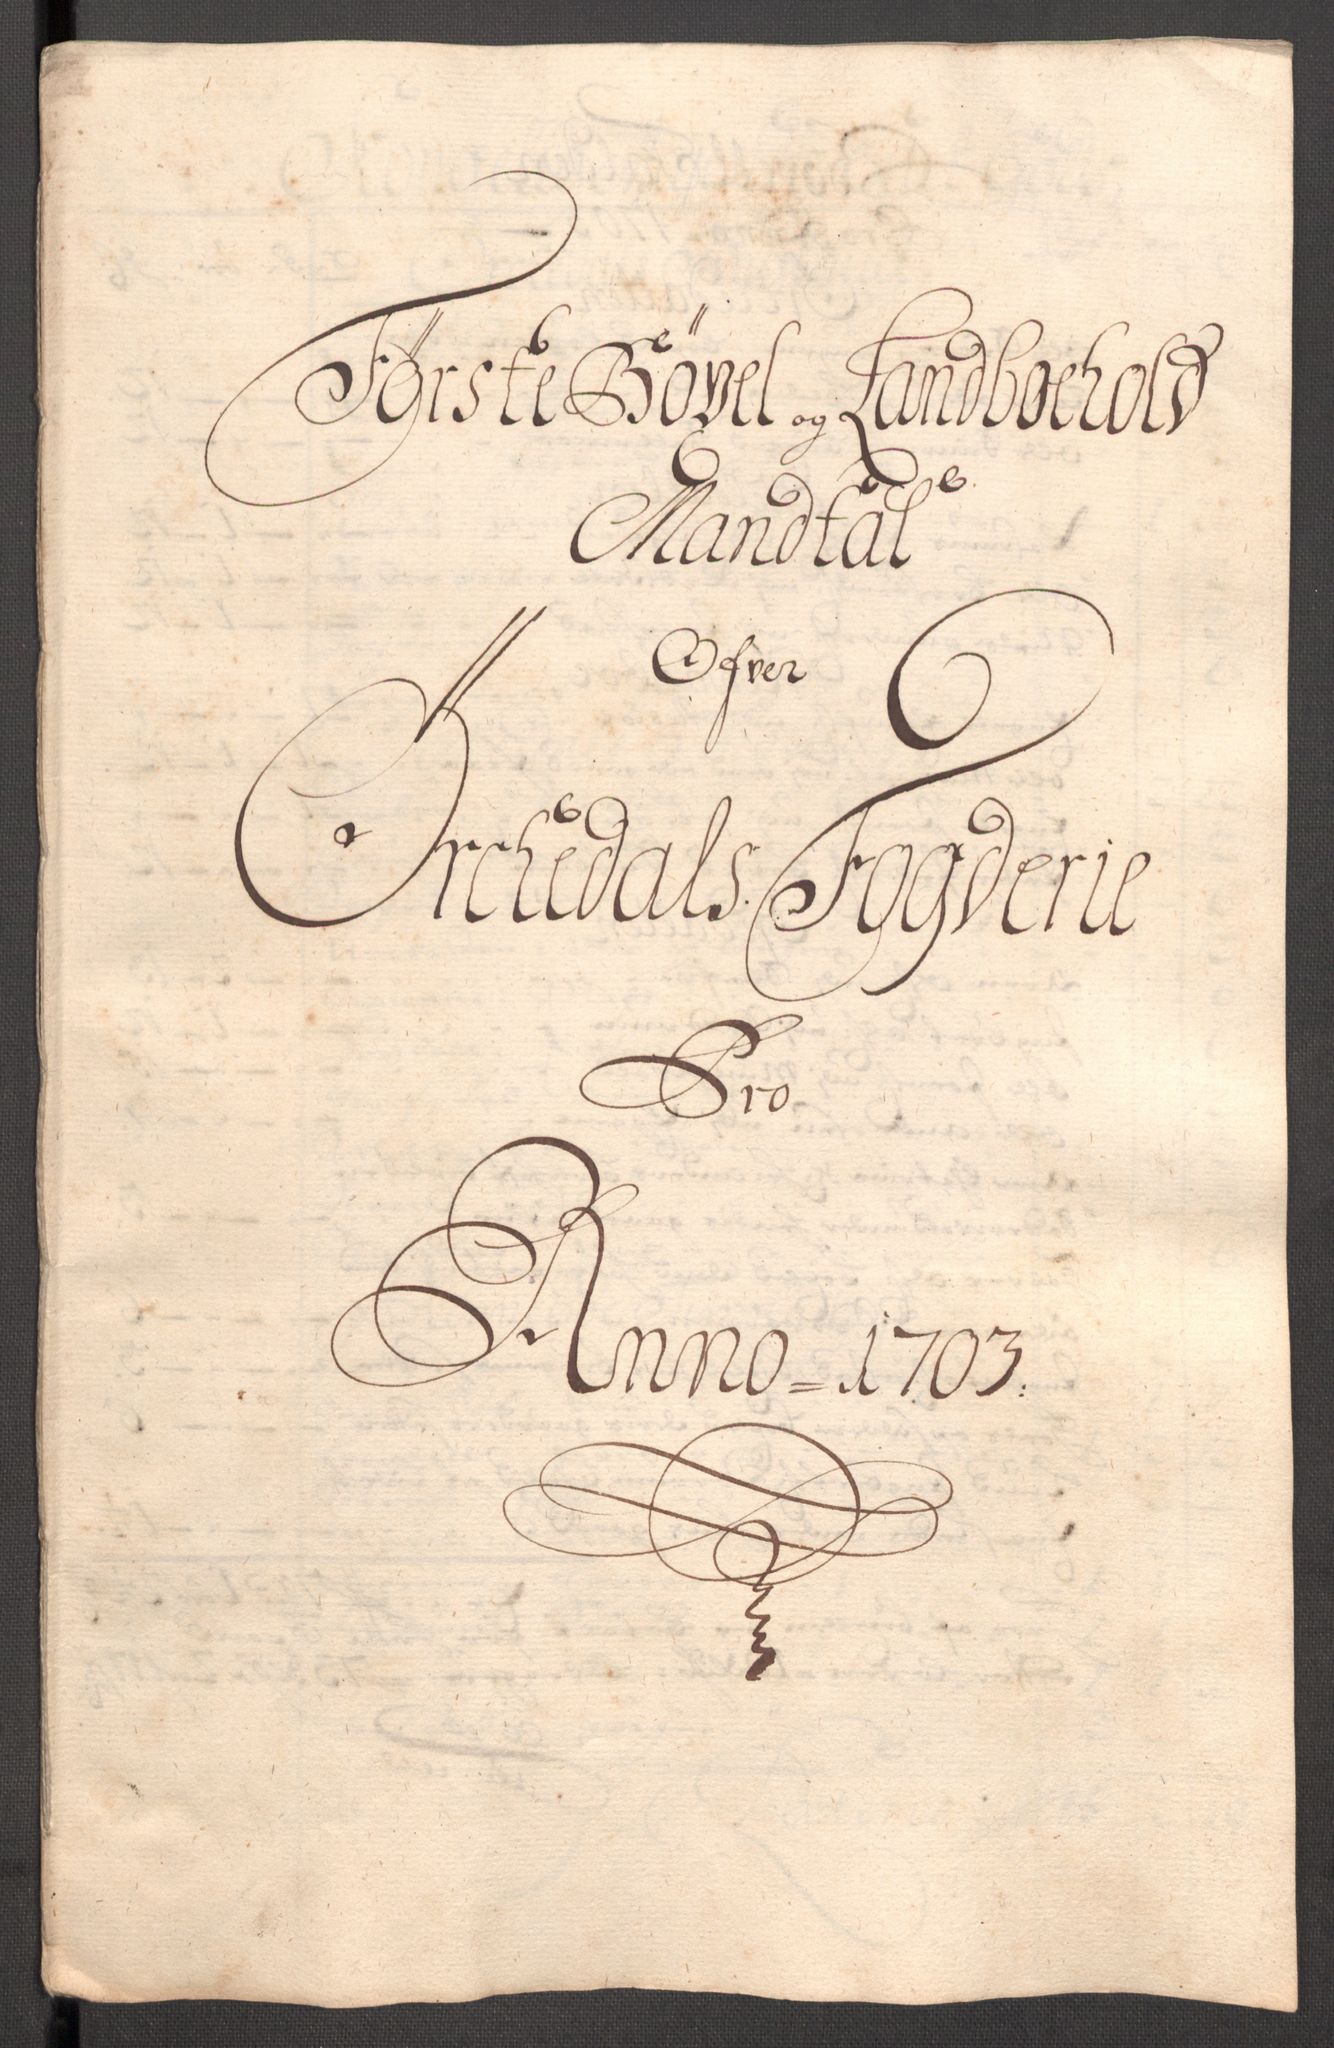 Förste Bövel og Landboehold
Mandtal
Ofver
Örchedals Fogderie
Pro
Anno = 1703.